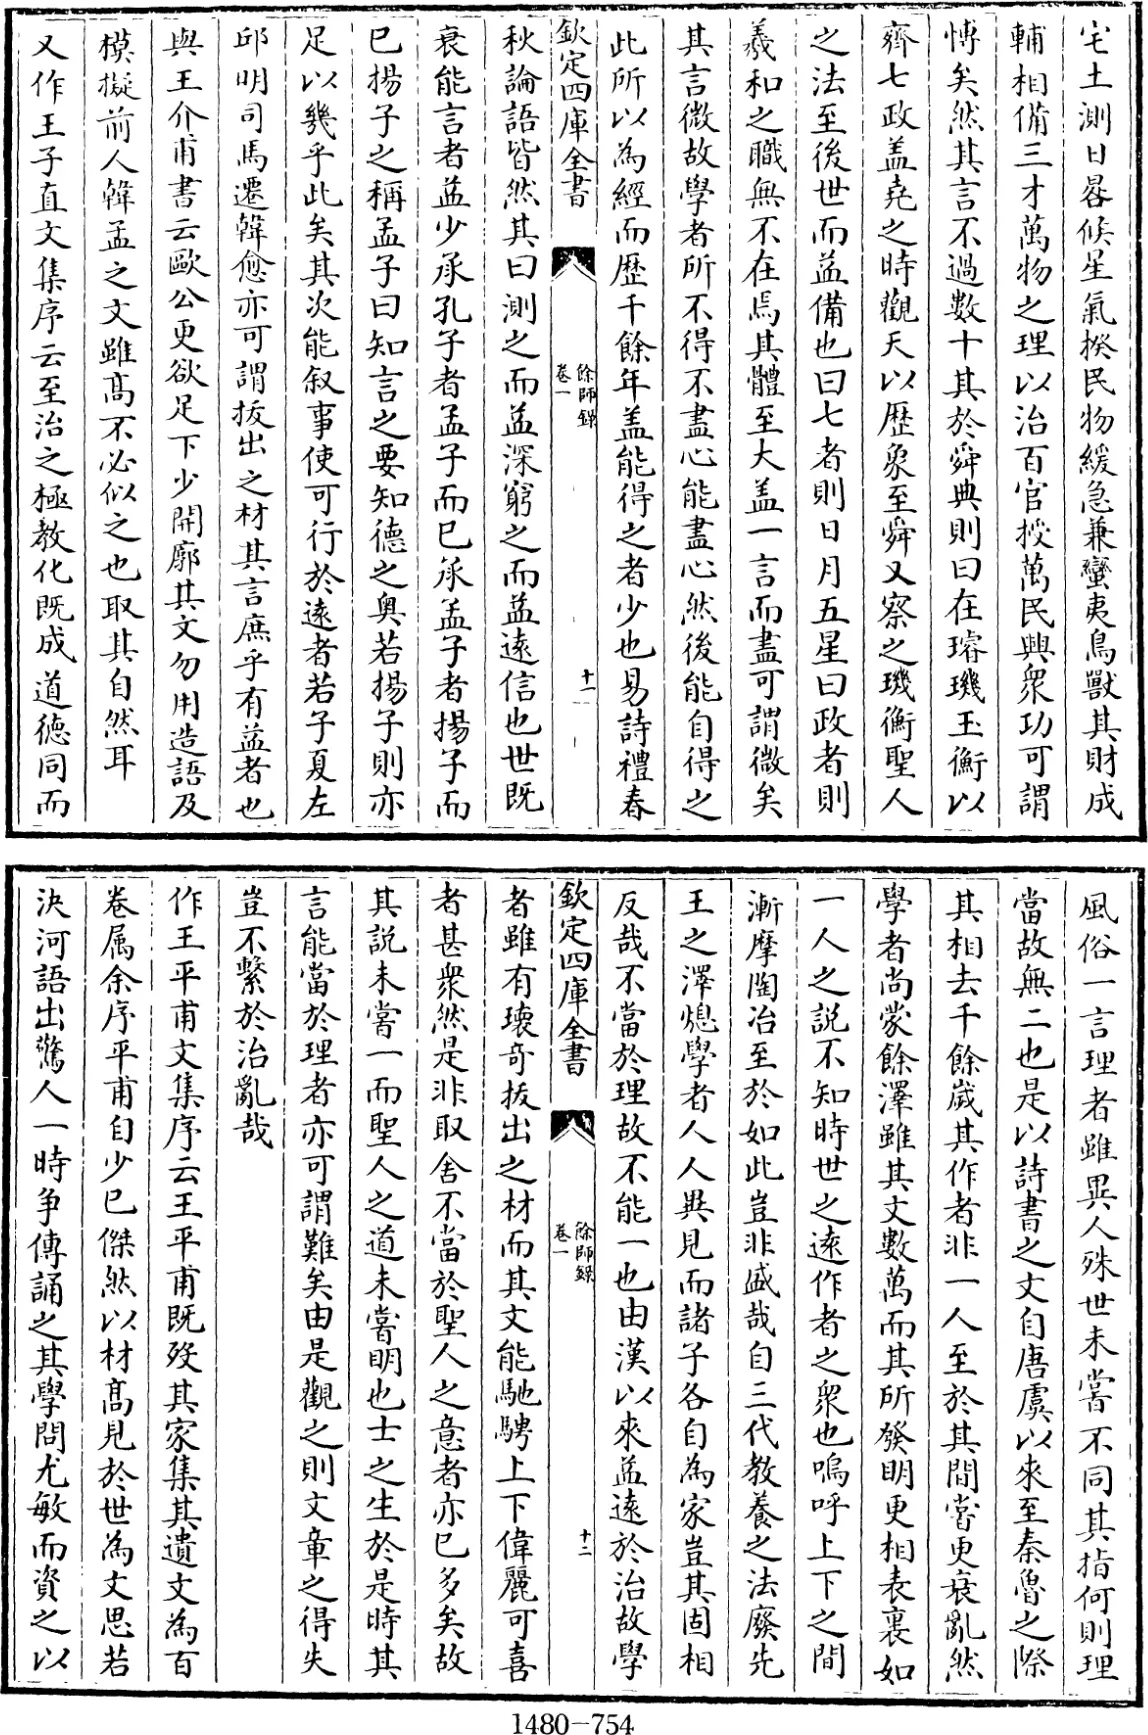 宅土測日晷候星氣揆民物緩急兼蠻夷鳥獸其財成
輔相備三才萬物之理以治百官授萬民興衆功可謂
愽矣然其言不過數十其於舜典則曰在璿璣玉衡以
齊七政盖堯之時觀天以歴象至舜又察之璣衡聖人
之法至後世而益備也曰七者則日月五星曰政者則
羲和之職無不在焉其體至大盖一言而盡可謂微矣
其言微故學者所不得不盡心能盡心然後能自得之
此所以為經而歴千餘年盖能得之者少也易詩禮春
欽定四庫全書
餘師錄
卷一
十一
秋論語皆然其曰測之而益深窮之而益逺信也世既
衰能言者益少承孔子者孟子而已承孟子者揚子而
已揚子之稱孟子曰知言之要知德之奥若揚子則亦
足以幾乎此矣其次能叙事使可行於逺者若子夏左
邱明司馬遷韓愈亦可謂拔出之材其言庶乎有益者也
與王介甫書云歐公更欲足下少開廓其文勿用造語及
模擬前人韓孟之文雖髙不必似之也取其自然耳
又作王子直文集序云至治之極教化既成道德同而
風俗一言理者雖異人殊世未嘗不同其指何則理
當故無二也是以詩書之文自唐虞以來至秦魯之際
其相去千餘嵗其作者非一人至於其間嘗更衰亂然
學者尚蒙餘澤雖其文數萬而其所發明更相表裏如
一人之説不知時世之逺作者之衆也嗚呼上下之間
漸摩陶冶至於如此豈非盛哉自三代教養之法廢先
王之澤熄學者人人異見而諸子各自為家豈其固相
反哉不當於理故不能一也由漢以來益逺於治故學
欽定四庫全書
餘師錄
卷一
十二
者雖有瓌奇拔出之材而其文能馳騁上下偉麗可喜
者甚衆然是非取舍不當於聖人之意者亦已多矣故
其説未嘗一而聖人之道未嘗明也士之生於是時其
言能當於理者亦可謂難矣由是觀之則文章之得失
豈不繫於治亂哉
作王平甫文集序云王平甫既歿其家集其遺文為百
卷属余序平甫自少已傑然以材髙見於世為文思若
決河語出驚人一時争傳誦之其學問尤敏而資之以
1480-754